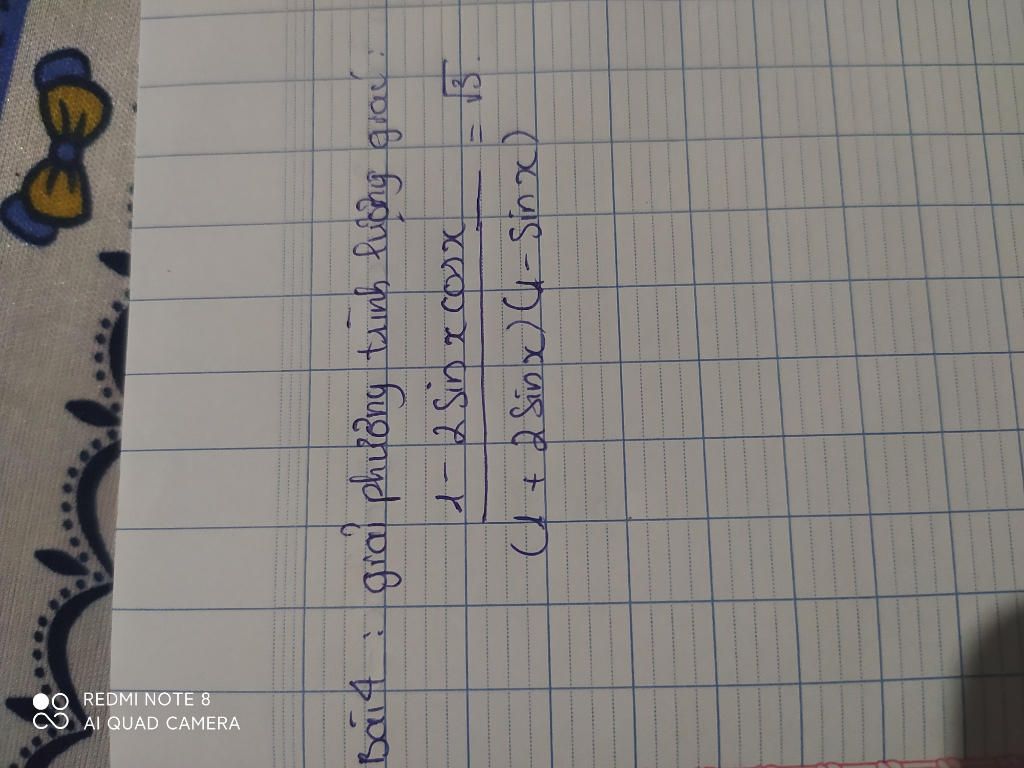 Bài 4 : giải phương trình lượng giác :
1 - 2 Sin x cos x / (1 + 2 Sin x) (1 - Sin x) = √3.
REDMI NOTE 8
AI QUAD CAMERA